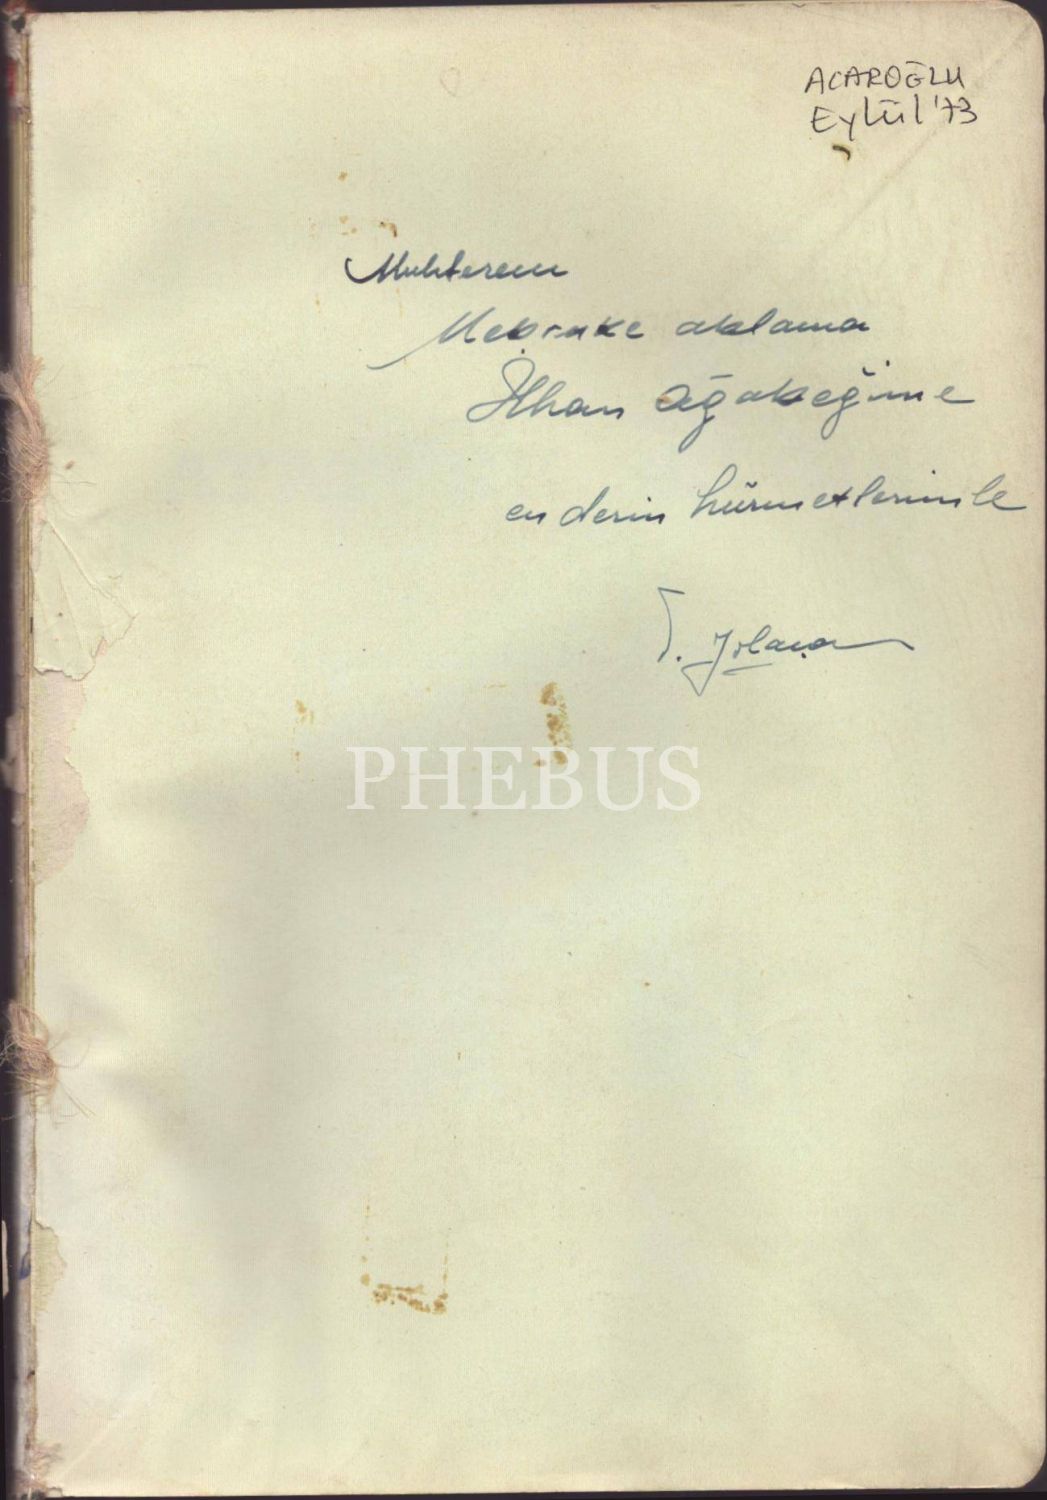 ACAROĞLU
Eylül '73
Muhterem
Mebruke ablama
İlhan Ağabeğime
en derin hürmetlerimle
PHEBUS